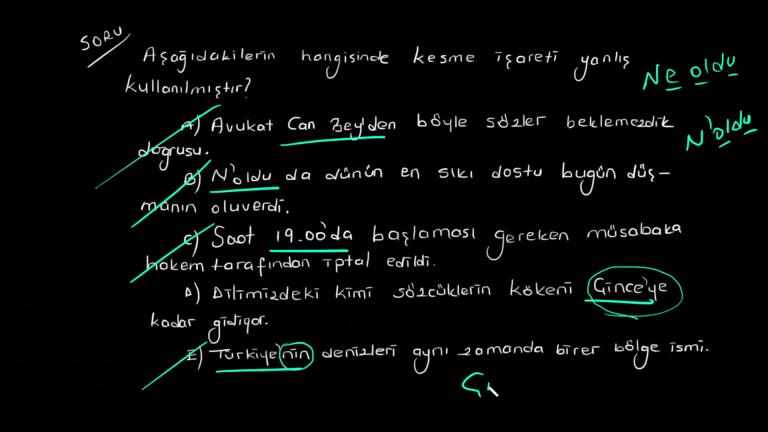 SORU
Aşağıdakilerin hangisinde kesme işareti yanlış
kullanılmıştır?
Ne oldu
A) Avukat Can Bey'den böyle sözler beklemezdik
doğrusu.
N'oldu
B) N'oldu da dünün en sıkı dostu bugün düş-
manın oluverdi.
C) Saat 19.00'da başlaması gereken müsabaka
hakem tarafından iptal edildi.
D) Dilimizdeki kimi sözcüklerin kökeni Çince'ye
kadar gidiyor.
E) Türkiye'nin denizleri aynı zamanda birer bölge ismi.